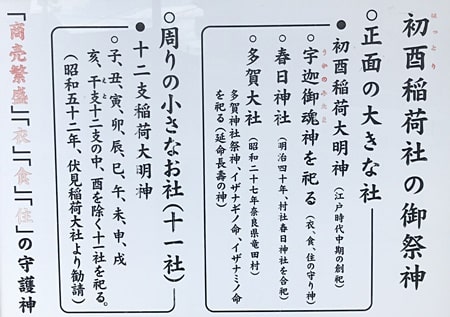 初酉稲荷社の御祭神
はっとり
○正面の大きな社
●初酉稲荷大明神(江戸時代中期の創祀)
○宇迦御魂神を祀る(衣、食、住の守り神)
うかのみたま
○春日神社(明治四十年、村社春日神社を合祀)
○多賀大社(昭和二十七年奈良県竜田村)
多賀神社祭神、イザナギノ命、イザナミノ命
を祀る(延命長壽の神)
○周りの小さなお社(十一社)
●十二支稲荷大明神
○子、丑、寅、卯、辰、巳、午、未、申、戌
亥、干支十二支の中、酉を除く十一社を祀る。
えと
(昭和五十二年、伏見稲荷大社より勧請)
「商売繁盛」「衣」「食」「住」の守護神